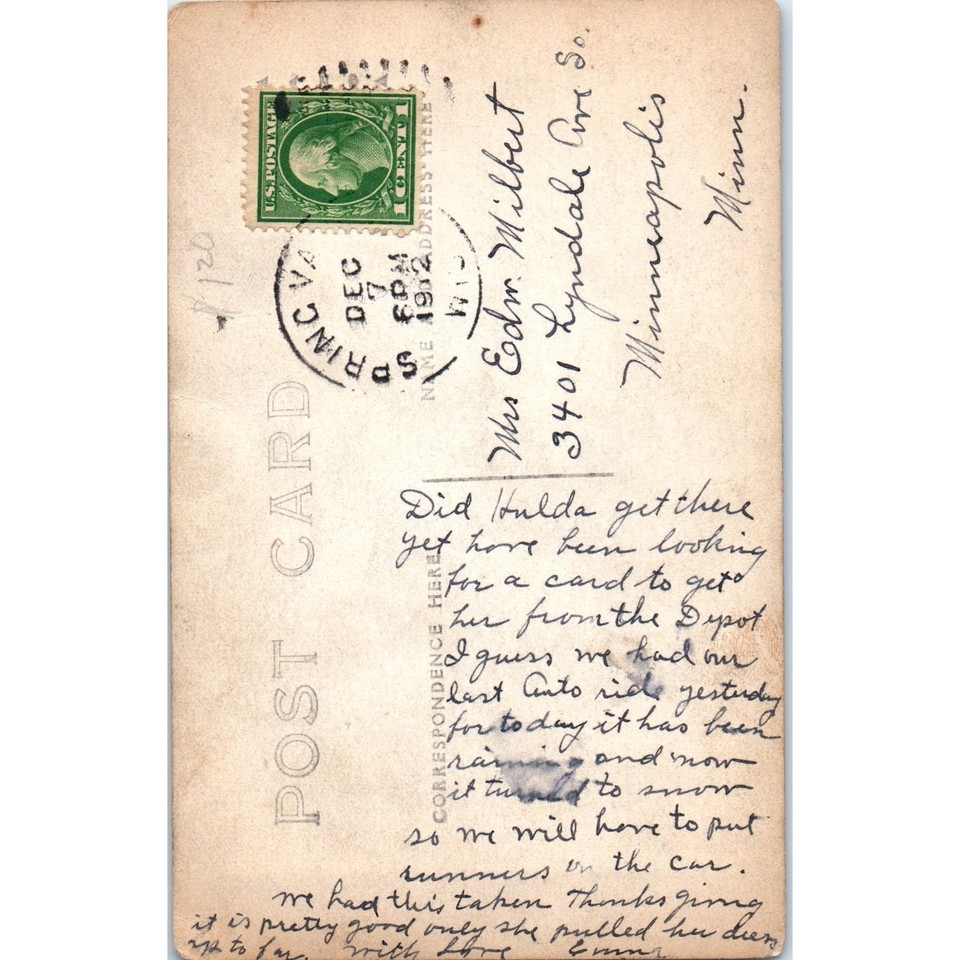 POST CARD
CORRESPONDENCE HERE
NAME AND ADDRESS HERE
U.S. POSTAGE
1 CENT 1
SPRING VA
DEC
7
6 PM
1912
WIS
$1.20
Mrs Edw. Milbert
3401 Lyndale Ave So.
Minneapolis
Minn.
Did Hulda get there
yet have been looking
for a card to get
her from the Depot
I guess we had our
last Auto ride yesterday
for today it has been
raining and now
it turned to snow
so we will have to put
runners on the car.
we had this taken Thanksgiving
it is pretty good only she pulled her dress
up to far. With Love Emma